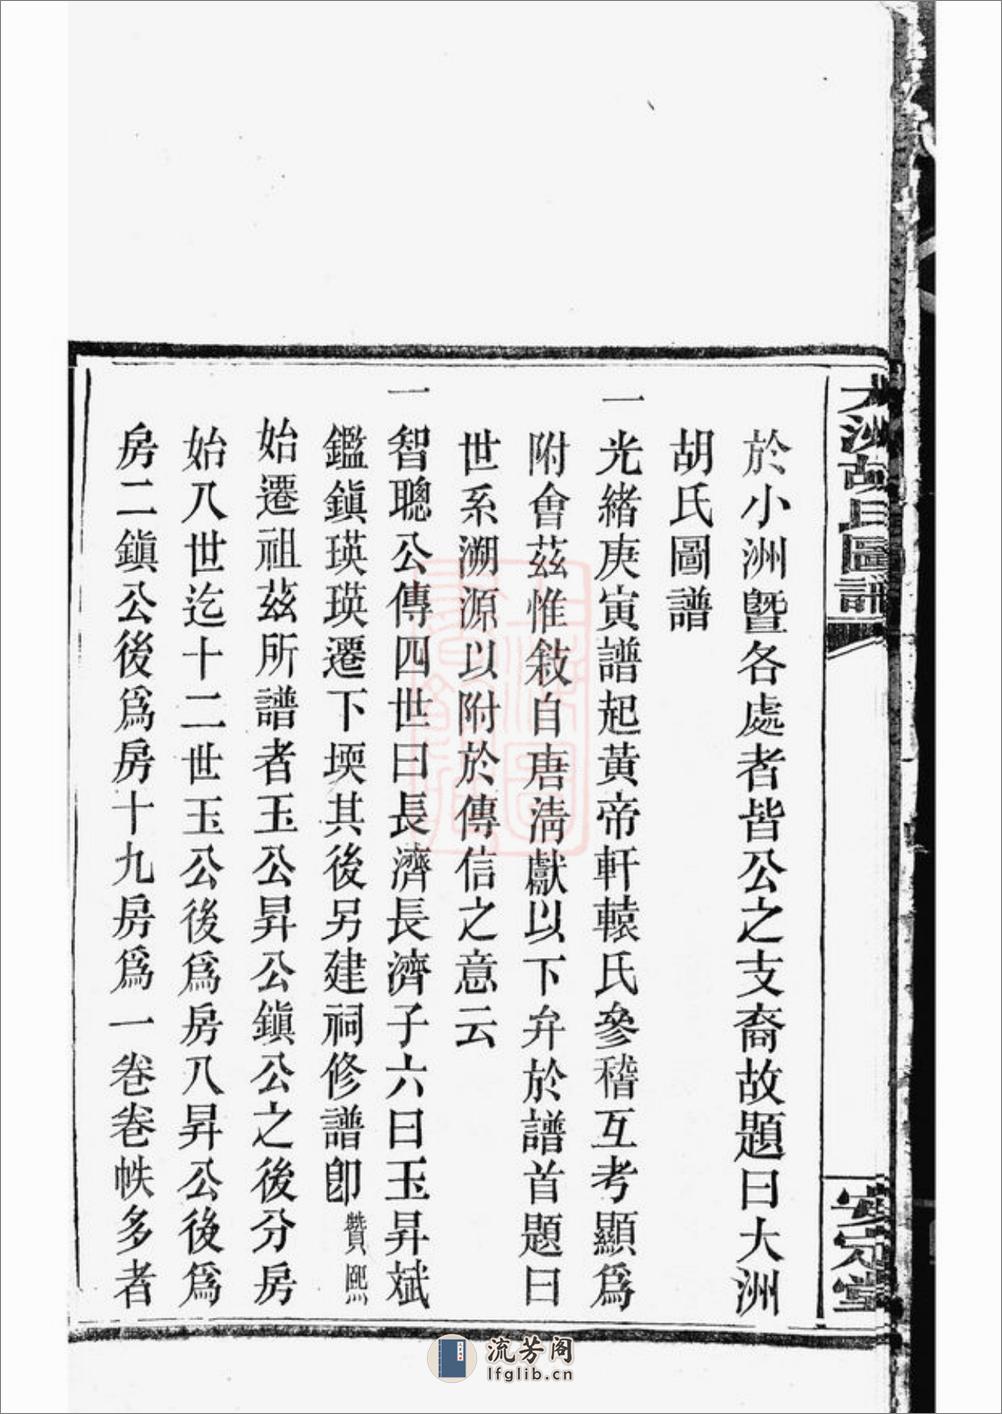 大洲胡氏圖譜
安定堂
於小洲暨各處者皆公之支裔故題曰大洲
胡氏圖譜
一光緒庚寅譜起黃帝軒轅氏參稽互考顯爲
附會茲惟敍自唐淸獻以下弁於譜首題曰
世系溯源以附於傳信之意云
一智聰公傳四世曰長濟長濟子六曰玉昇斌
鑑鎭瑛瑛遷下堧其後另建祠修譜卽贊熙
始遷祖茲所譜者玉公昇公鎭公之後分房
始八世迄十二世玉公後爲房八昇公後爲
房二鎭公後爲房十九房爲一卷卷帙多者
流芳阁
lfglib.cn